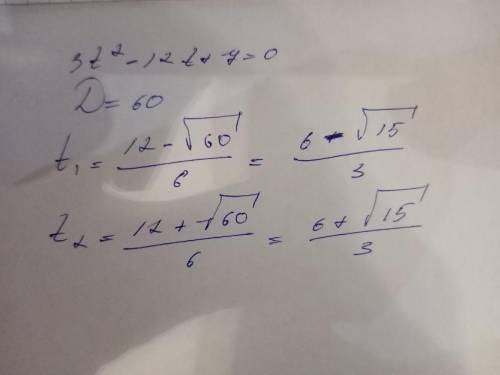 3t² - 12t + 7 = 0
D = 60
t₁ = (12 - √60)/6 = (6 - √15)/3
t₂ = (12 + √60)/6 = (6 + √15)/3